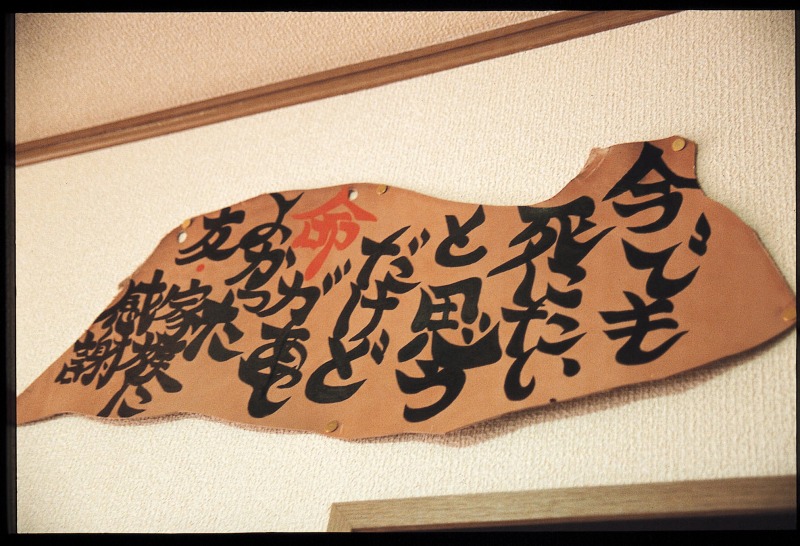 今でも
死にたい
と思う
だけど
命が
よかった
友・
家族に
感謝